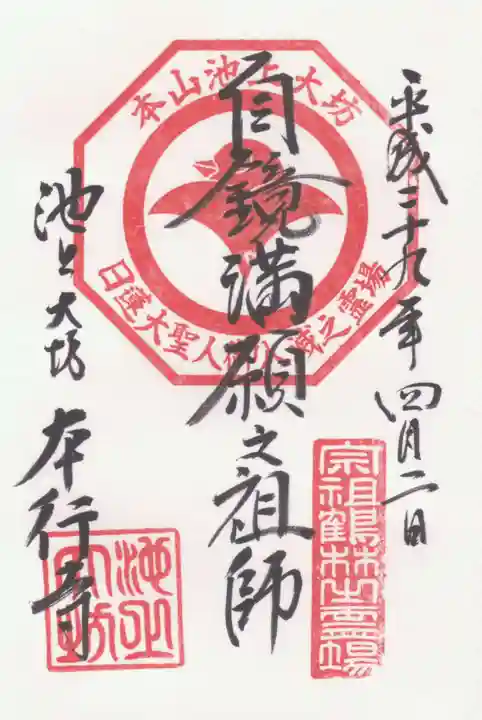 平成二十九年四月二日
自鏡満願之祖師
池上大坊 本行寺
本山池上大坊
日蓮大聖人御入滅之霊場
宗祖鶴林之霊場
池上大坊